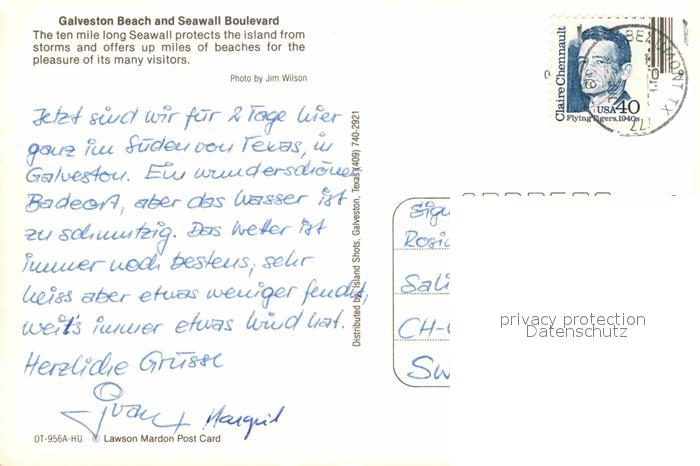 Galveston Beach and Seawall Boulevard
The ten mile long Seawall protects the island from
storms and offers up miles of beaches for the
pleasure of its many visitors.
Photo by Jim Wilson
Jetzt sind wir für 2 Tage hier
ganz im Süden von Texas, in
Galveston. Ein wunderschöner
Badeort, aber das Wasser ist
zu schmutzig. Das Wetter ist
immer noch bestens, sehr
heiss aber etwas weniger feucht,
weil's immer etwas Wind hat.
Herzliche Grüsse
Ivan + Margrit
DT-956A-HU © Lawson Mardon Post Card
Distributed by Island Shots, Galveston, Texas (409) 740-2921
Claire Chennault
USA 40
Flying Tigers, 1940s
BEAUMONT TX
777
Rosi
Sali
CH-
Sw
privacy protection
Datenschutz